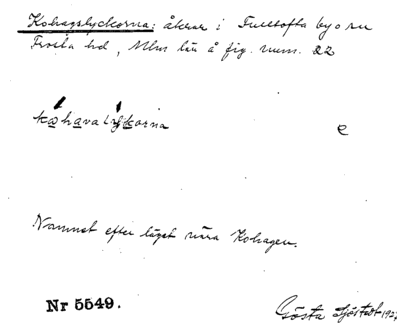 Kohagslyckorna: åkrar i Fulltofta by o sn
Frosta hd, Mlms län å fig. num. 22
kohavalykorna e
Namnet efter läget nära Kohagen.
Nr 5549. Gösta Sjöstedt 1927